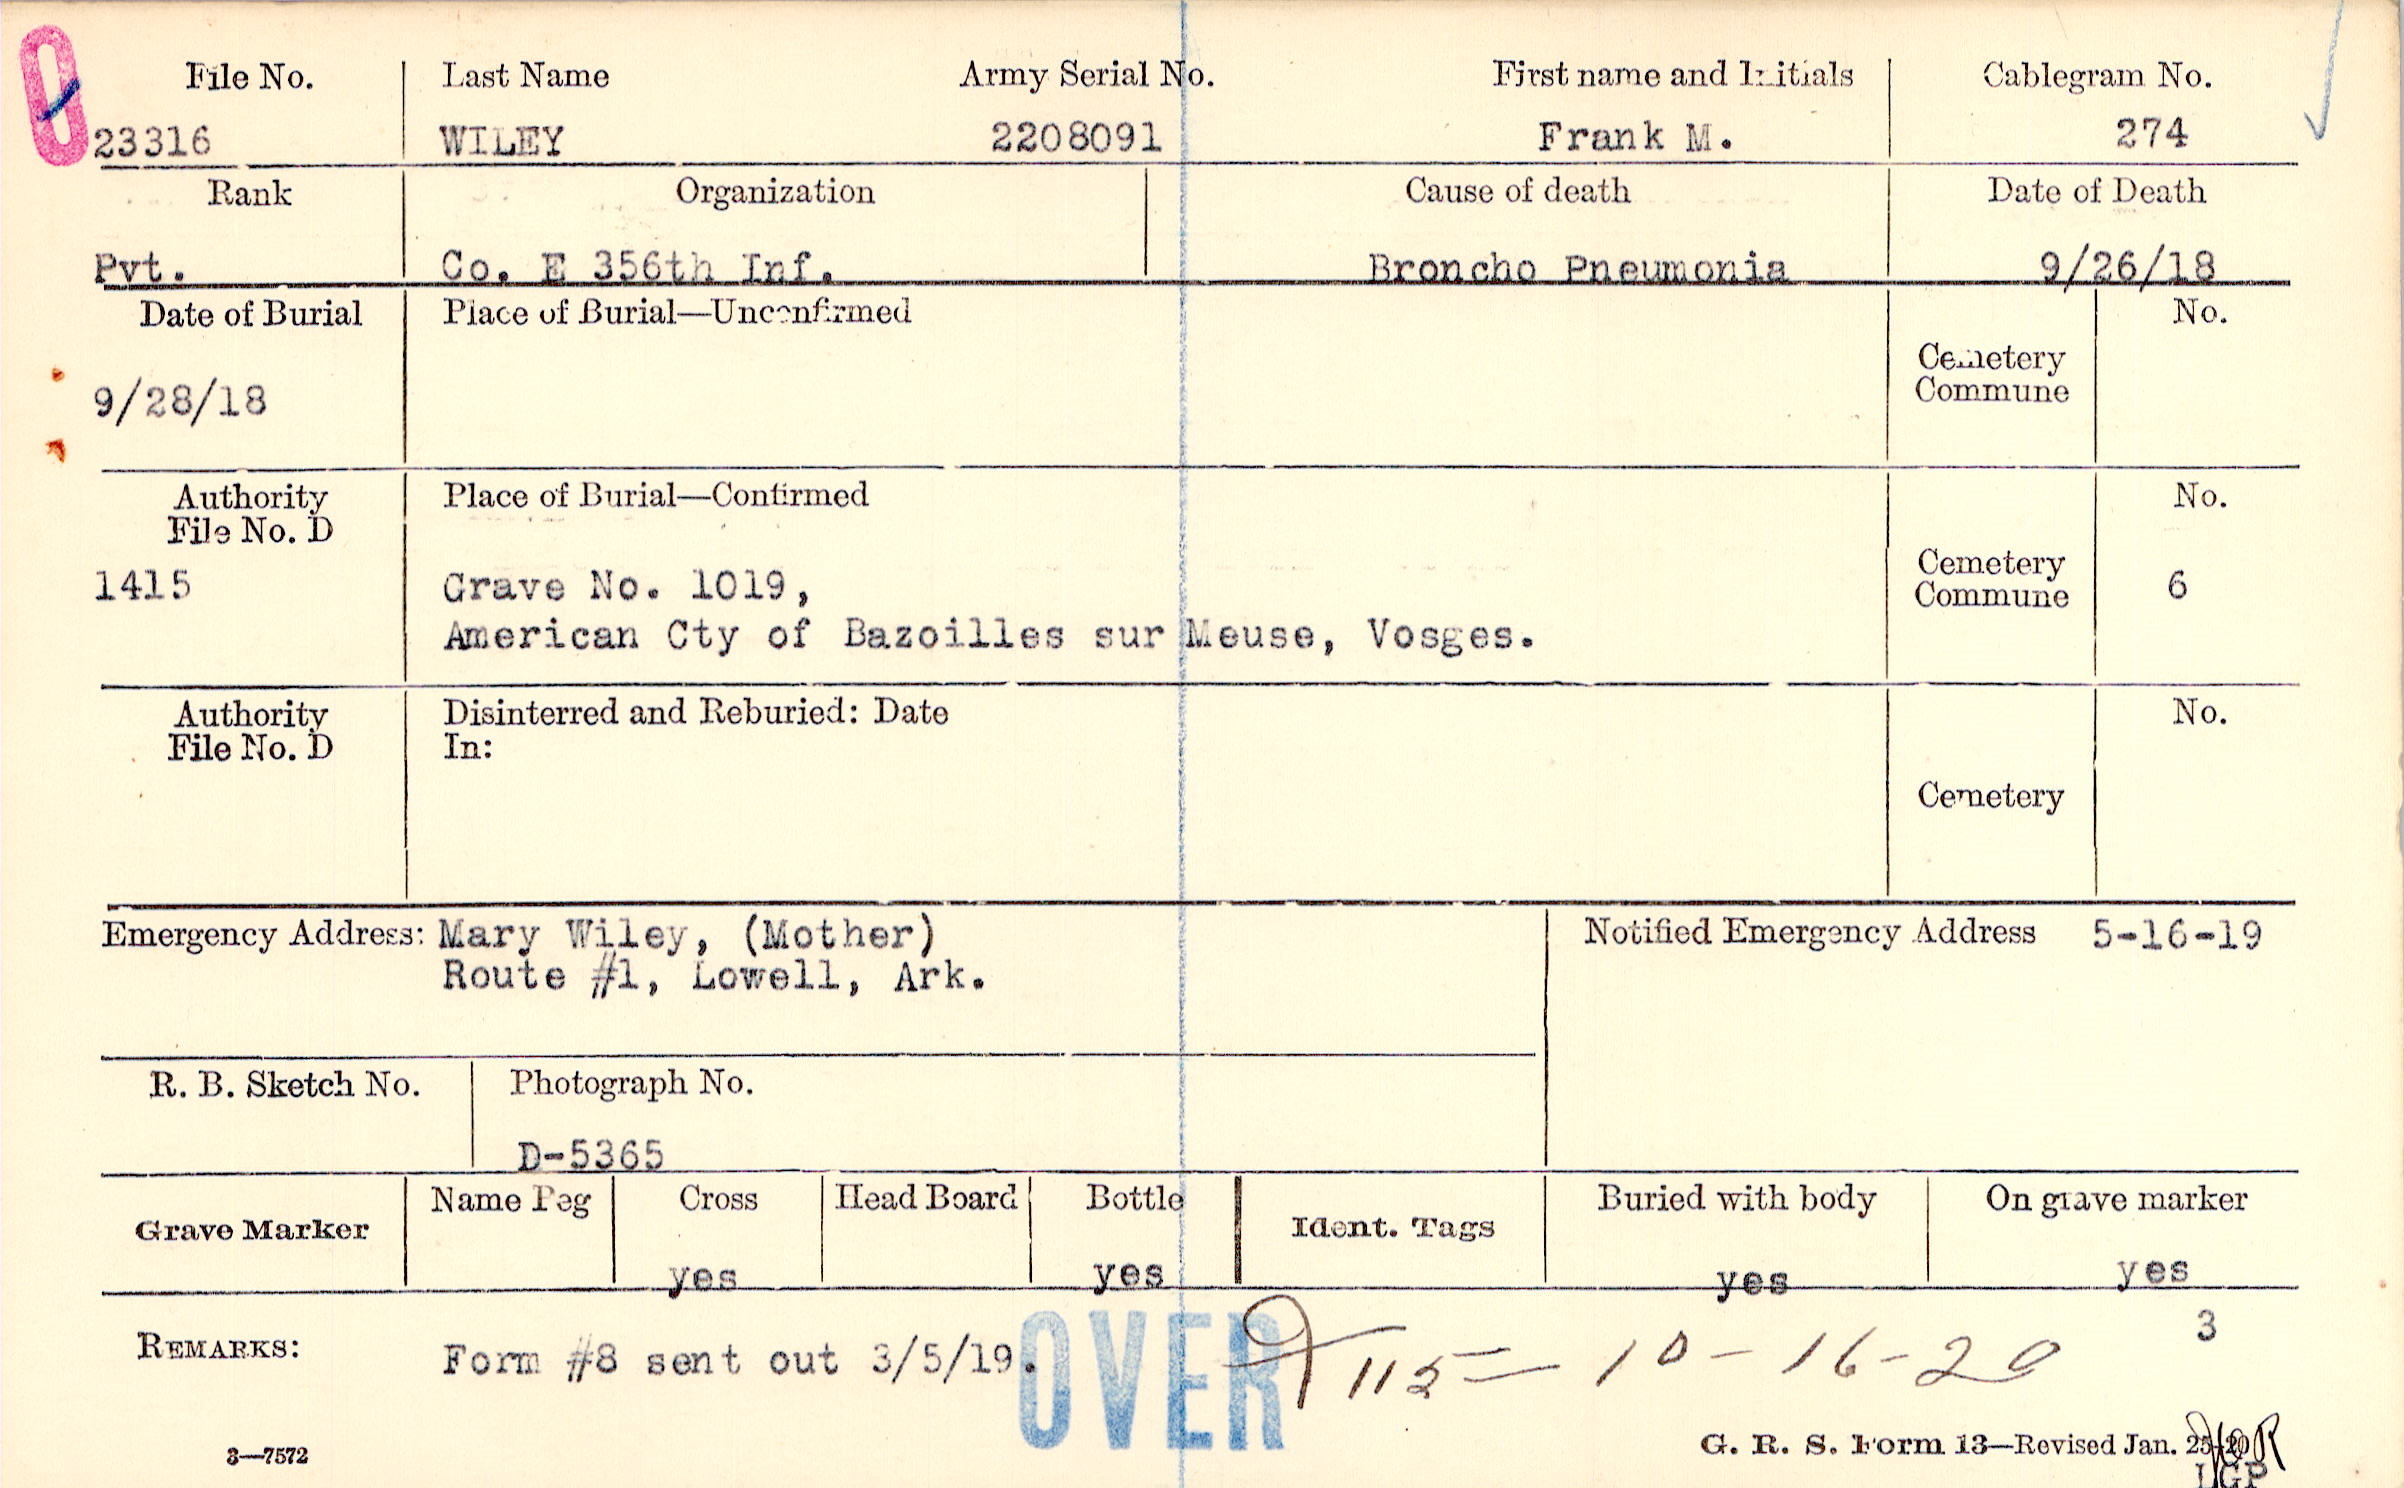 File No. Last Name Army Serial No. First name and Initials Cablegram No.
23316 WILEY 2208091 Frank M. 274
Rank Organization Cause of death Date of Death
Pvt. Co. E 356th Inf. Broncho Pneumonia 9/26/18
Date of Burial Place of Burial—Unconfirmed No.
Cemetery
Commune
9/28/18
Authority Place of Burial—Confirmed No.
File No. D
Cemetery
1415 Grave No. 1019, Commune 6
American Cty of Bazoilles sur Meuse, Vosges.
Authority Disinterred and Reburied: Date No.
File No. D In:
Cemetery
Emergency Address: Mary Wiley, (Mother) Notified Emergency Address 5-16-19
Route #1, Lowell, Ark.
R. B. Sketch No. Photograph No.
D-5365
Grave Marker Name Peg Cross Head Board Bottle Ident. Tags Buried with body On grave marker
yes yes yes yes
3
REMARKS: Form #8 sent out 3/5/19. OVER 115 = 10-16-20
3—7572 G. R. S. Form 13—Revised Jan. 25-20
LGP